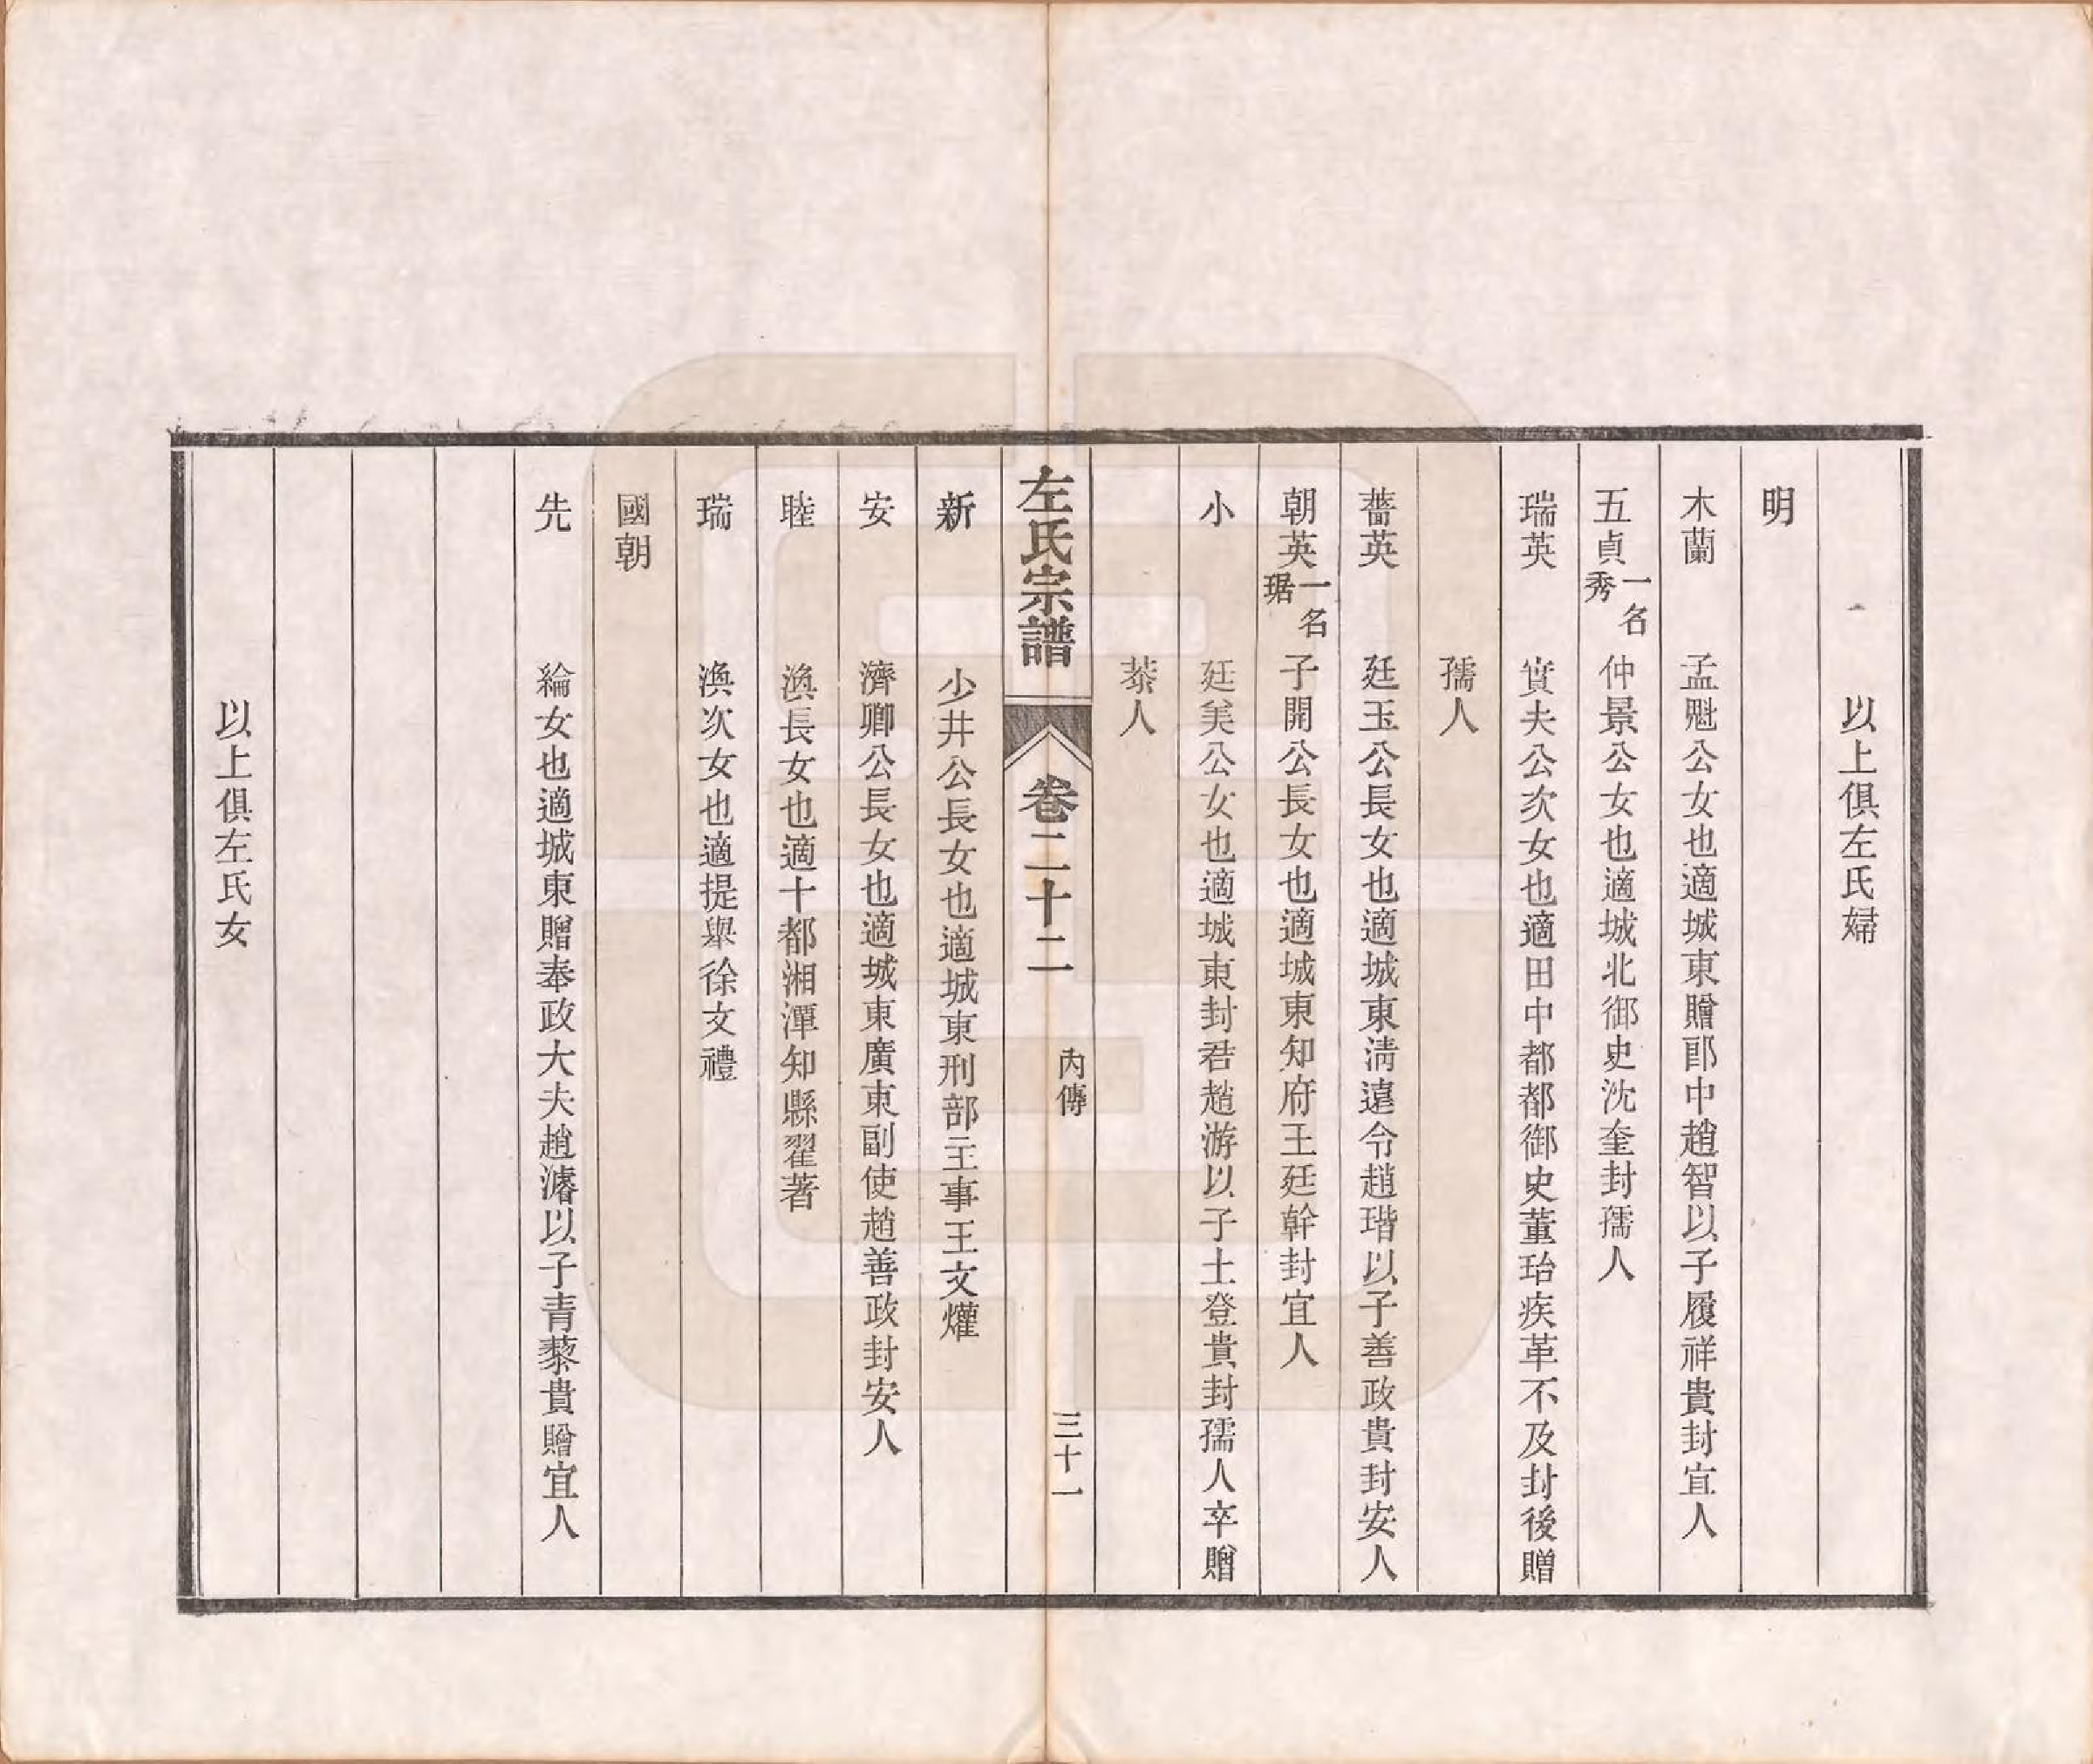 以上俱左氏婦
明
木蘭 孟魁公女也適城東贈郎中趙智以子履祥貴封宜人
五貞一名秀 仲景公女也適城北御史沈奎封孺人
瑞英 實夫公次女也適田中都都御史董珆疾革不及封後贈
孺人
薔英 廷玉公長女也適城東淸遠令趙瑎以子善政貴封安人
朝英一名琚 子開公長女也適城東知府王廷幹封宜人
小 廷美公女也適城東封君趙游以子士登貴封孺人卒贈
恭人
左氏宗譜 卷二十二 內傳 三十一
新 少井公長女也適城東刑部主事王文爟
安 濟卿公長女也適城東廣東副使趙善政封安人
睦 渙長女也適十都湘潭知縣翟著
瑞 渙次女也適提舉徐文禮
國朝
先 綸女也適城東贈奉政大夫趙濬以子青藜貴贈宜人
以上俱左氏女